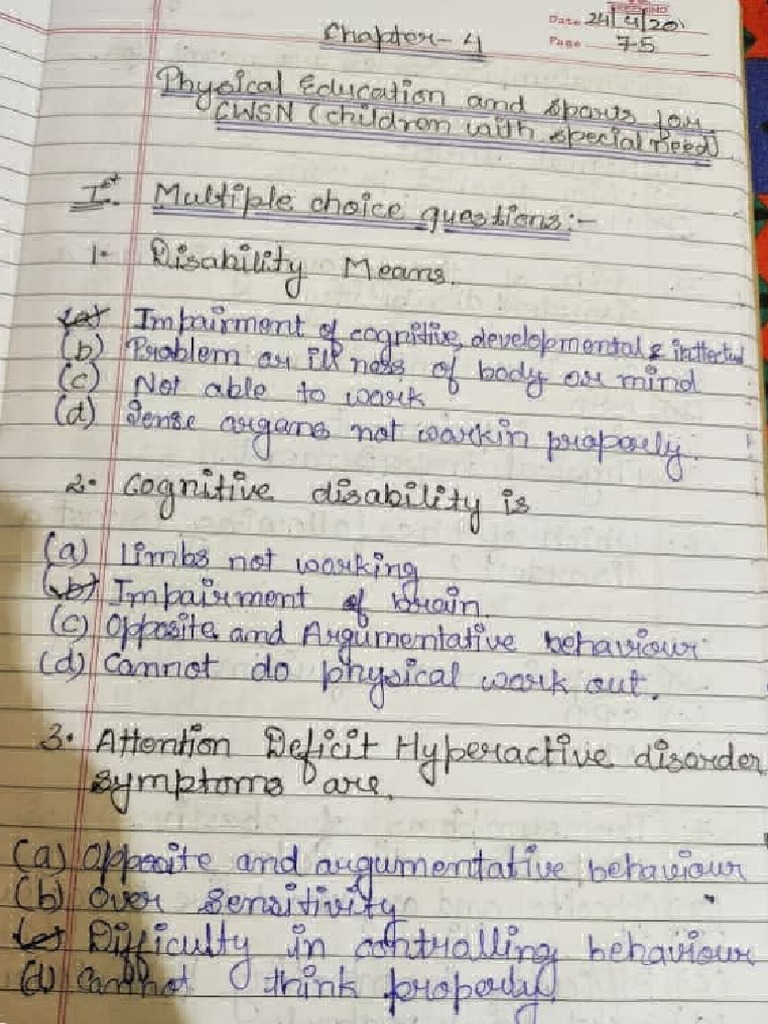 Date 24/4/20
Page 75
Chapter - 4
Physical Education and sports for
CWSN (children with special need)
Ist. Multiple choice questions:-
1. Disability Means.
(a) Impairment of cognitive, developmental & inttectud
(b) Problem or illness of body or mind
(c) Not able to work
(d) Sense organs not workin properly.
2. Cognitive disability is
(a) Limbs not working
(b) Impairment of brain.
(c) Opposite and Argumentative behaviour
(d) Cannot do physical work out.
3. Attention Deficit Hyperactive disorder
symptoms are.
(a) Opposite and argumentative behaviour
(b) Over sensitivity
(c) Difficulty in controlling behaviour
(d) Cannot think properly